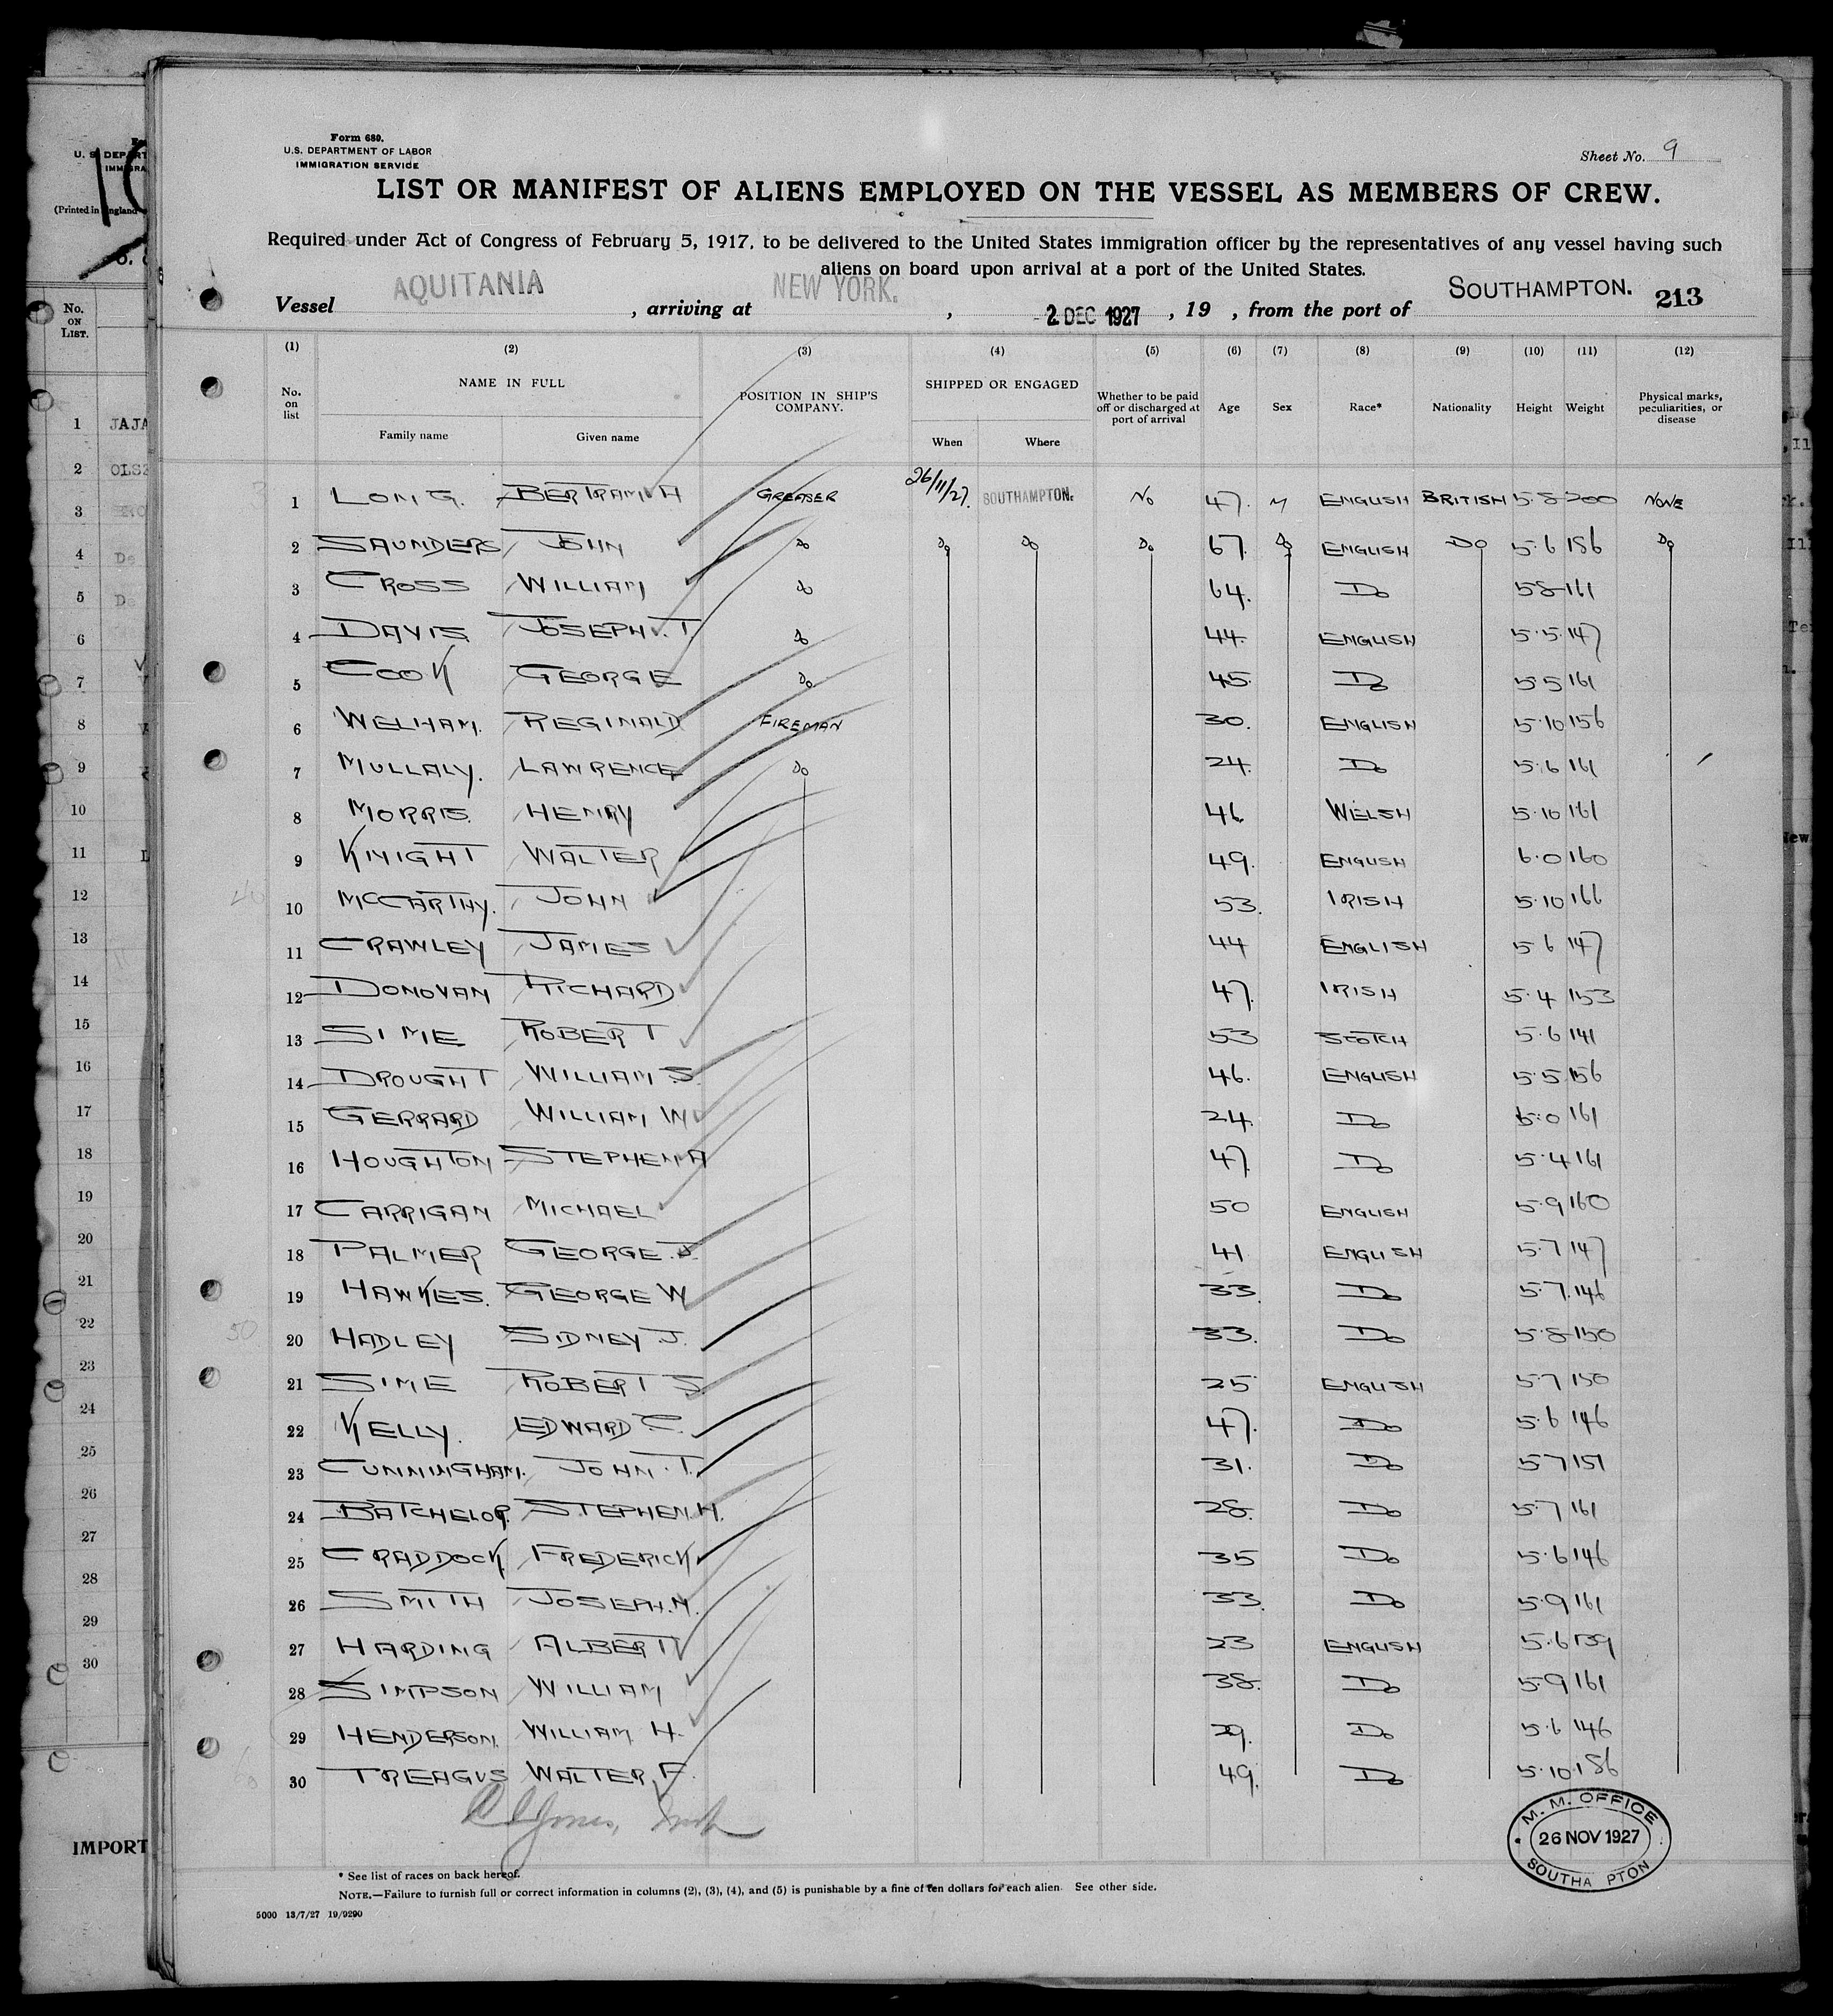 Form 680.
U.S. DEPARTMENT OF LABOR
IMMIGRATION SERVICE
Sheet No. 9
LIST OR MANIFEST OF ALIENS EMPLOYED ON THE VESSEL AS MEMBERS OF CREW.
Required under Act of Congress of February 5, 1917, to be delivered to the United States immigration officer by the representatives of any vessel having such
aliens on board upon arrival at a port of the United States.
Vessel AQUITANIA , arriving at NEW YORK. , 2 DEC 1927 , 19 , from the port of SOUTHAMPTON. 213
(1) (2) (3) (4) (5) (6) (7) (8) (9) (10) (11) (12)
No. on list NAME IN FULL Family name Given name POSITION IN SHIP'S COMPANY. SHIPPED OR ENGAGED When Where Whether to be paid off or discharged at port of arrival Age Sex Race* Nationality Height Weight Physical marks, peculiarities, or disease
1 LONG. BERTRAM A GREASER 26/11/27. SOUTHAMPTON. No 47. M ENGLISH BRITISH 5.8 200 NONE
2 SAUNDERS JOHN Do Do Do Do 67. Do ENGLISH Do 5.6 186 Do
3 CROSS WILLIAM Do 64. Do 5 8 161
4 DAVIS JOSEPH. T. Do 44. ENGLISH 5.5 147
5 COOK GEORGE Do 45. Do 5.5 161
6 WELHAM. REGINALD FIREMAN 30. ENGLISH 5.10 156
7 MULLALY. LAWRENCE Do 24. Do 5.6 161
8 MORRIS. HENRY 46. WELSH 5.10 161
9 KNIGHT WALTER 49. ENGLISH 6.0 160
10 McCARTHY. JOHN 53. IRISH 5.10 166
11 CRAWLEY JAMES 44 ENGLISH 5 6 147
12 DONOVAN RICHARD 47. IRISH 5.4 153
13 SIME ROBERT 53 SCOTCH 5.6 141
14 DROUGHT WILLIAM S. 46. ENGLISH 5.5 156
15 GERRARD WILLIAM W 24. Do 161
16 HOUGHTON STEPHEN A 47. Do 5.4 161
17 CARRIGAN MICHAEL 50 ENGLISH 5.9 160
18 PALMER GEORGE. J. 41 ENGLISH 5.7 147
19 HAWKES. GEORGE W 33. Do 5.7. 146
20 HADLEY SIDNEY J. 33. Do 5.8 150
21 SIME ROBERT S. 25 ENGLISH 5.7 150
22 KELLY. EDWARD C. 47. Do 5.6 146
23 CUNNINGHAM. JOHN. T. 31. Do 5 7 151
24 BATCHELOR. STEPHEN. H. 28. Do 5.7 161
25 CRADDOCK. FREDERICK 35 Do 5.6 146
26 SMITH JOSEPH. H. 33. Do 5.9 161
27 HARDING ALBERT 23 ENGLISH 5.6 139
28 SIMPSON WILLIAM 38. Do 5.9 161
29 HENDERSON. WILLIAM H. 29. Do 5.6 146
30 TREAGUS WALTER. F. 49. Do 5.10. 186
M. M. OFFICE
26 NOV 1927
SOUTHA PTON
* See list of races on back hereof.
NOTE.—Failure to furnish full or correct information in columns (2), (3), (4), and (5) is punishable by a fine of ten dollars for each alien. See other side.
5000 13/7/27 19/9290